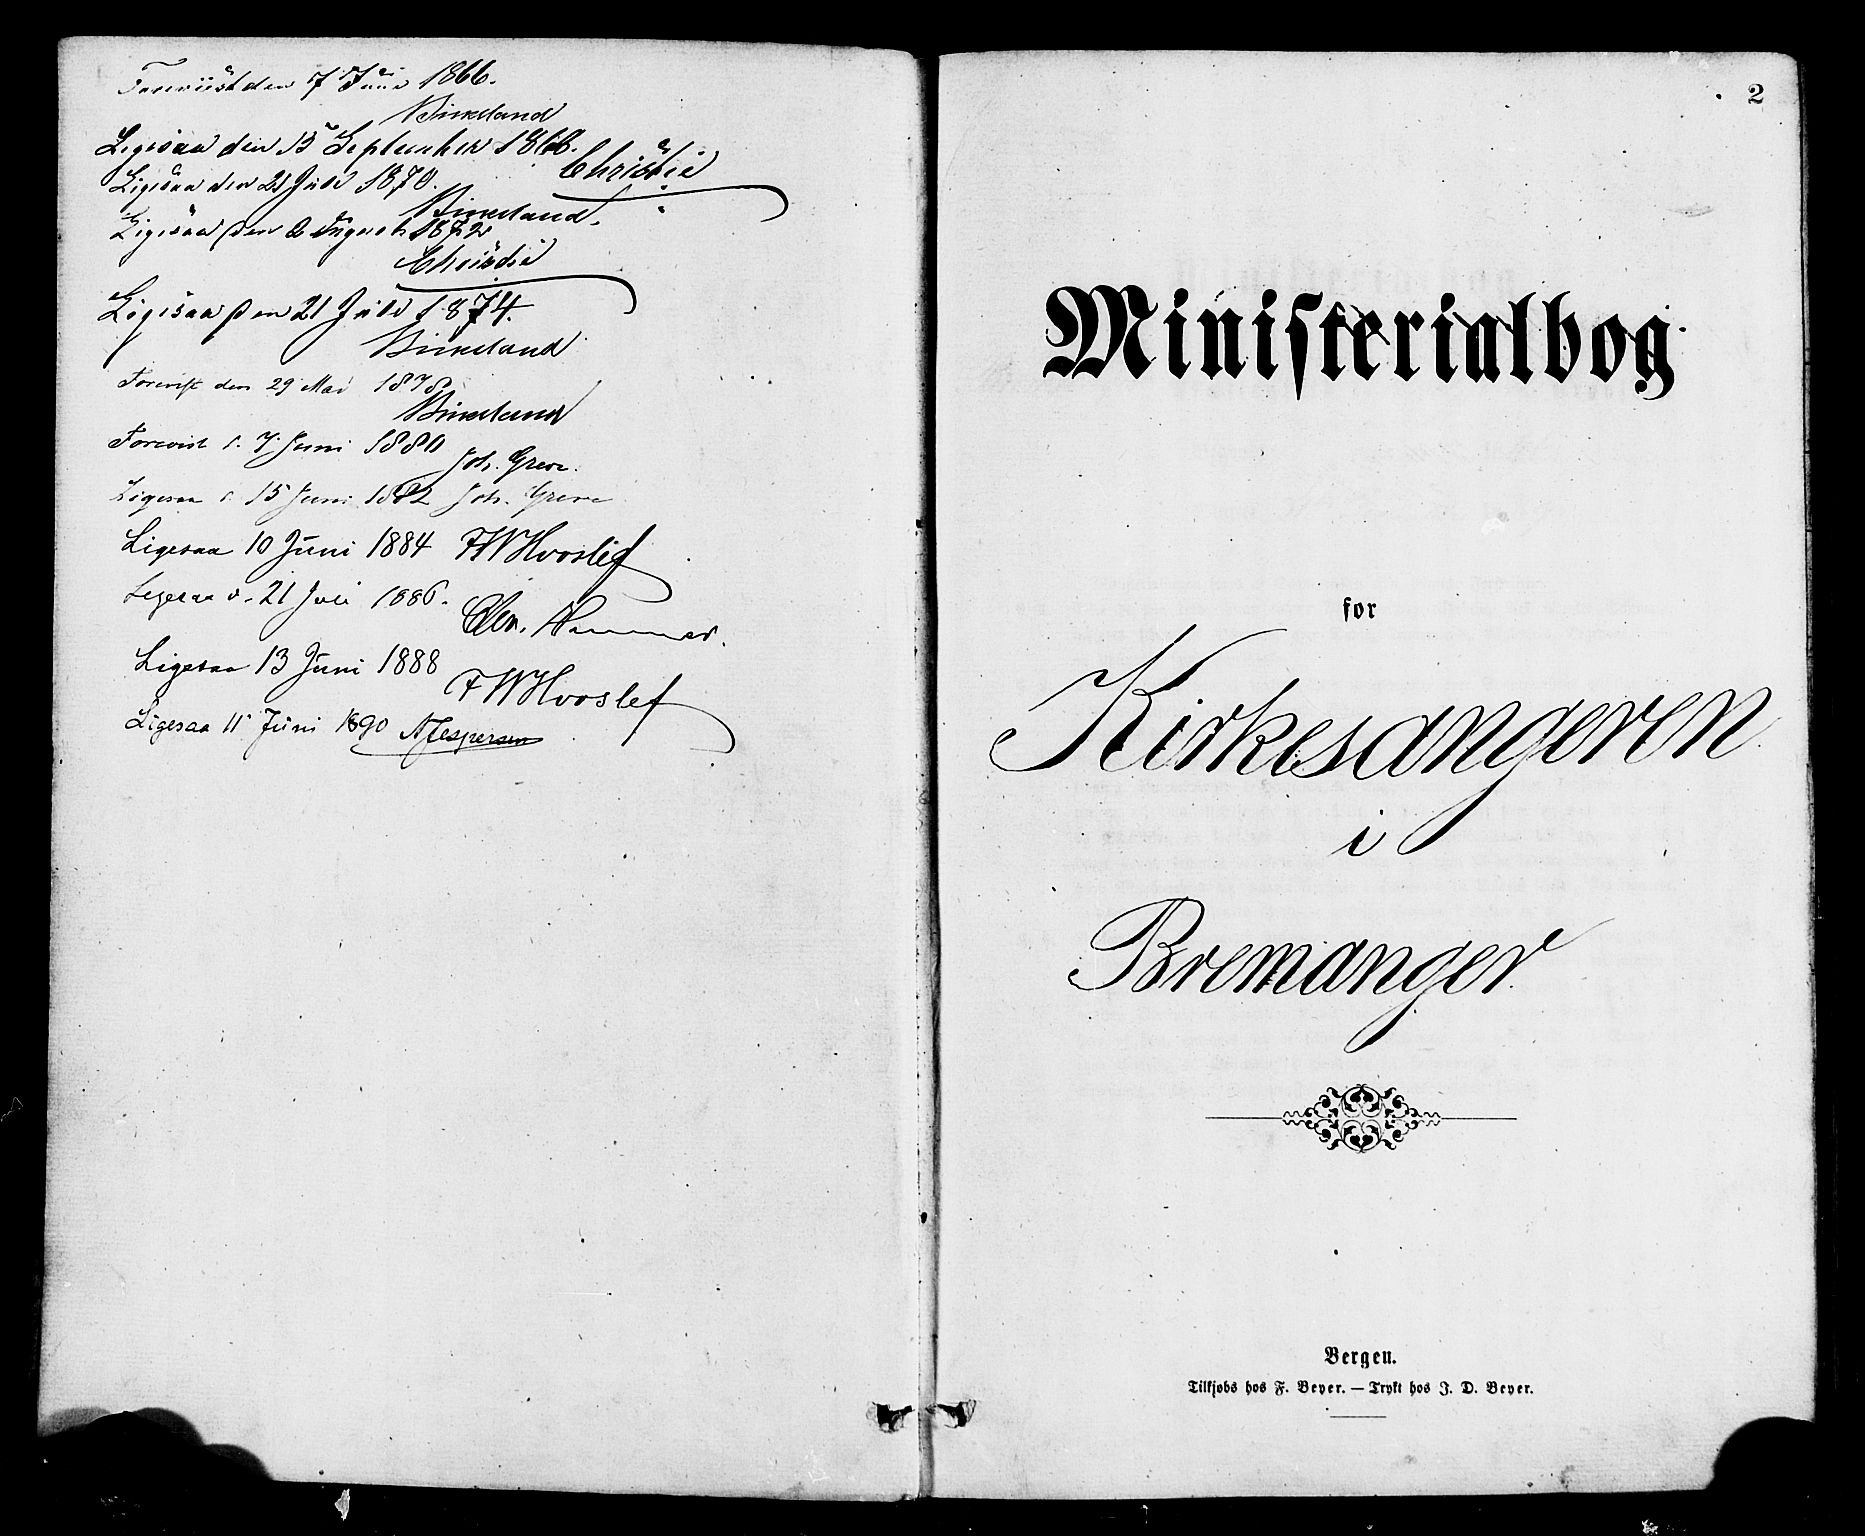 Foreviist den 7 Juni 1866.
Birkeland
Ligesaa den 15 September 1868.
Christie
Ligesaa den 21 Juli 1870.
Birkeland.
Ligesaa den 6 August 1872
Christie
Ligesaa den 21 Juli 1874.
Birkeland
Forevist den 29 Mai 1878,
Birkeland
Forevist d. 7 Juni 1880
Joh. Greve.
Ligesaa d. 15 Juni 1882 Joh. Greve
Ligesaa 10 Juni 1884 FWHvoslef
Ligesaa d. 21 Juli 1886.
Chr. Hammer.
Ligesaa 13 Juni 1888
FWHvoslef
Ligesaa 11 Juni 1890 AJespersen
2
Ministerialbog
for
Kirkesangeren
i
Bremanger
Bergen.
Tilkjøbs hos F. Beyer. — Trykt hos J. D. Beyer.